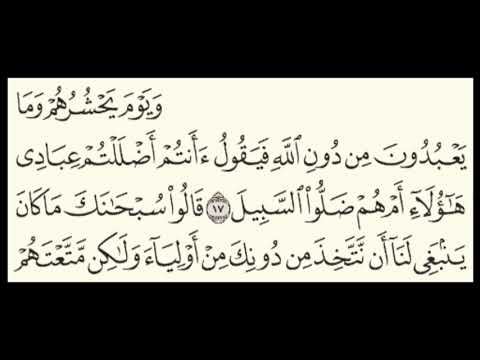 وَيَوْمَ يَحْشُرُهُمْ وَمَا
يَعْبُدُونَ مِن دُونِ ٱللَّهِ فَيَقُولُ ءَأَنتُمْ أَضْلَلْتُمْ عِبَادِى
هَٰٓؤُلَآءِ أَمْ هُمْ ضَلُّوا۟ ٱلسَّبِيلَ ١٧ قَالُوا۟ سُبْحَٰنَكَ مَا كَانَ
يَنۢبَغِى لَنَآ أَن نَّتَّخِذَ مِن دُونِكَ مِنْ أَوْلِيَآءَ وَلَٰكِن مَّتَّعْتَهُمْ